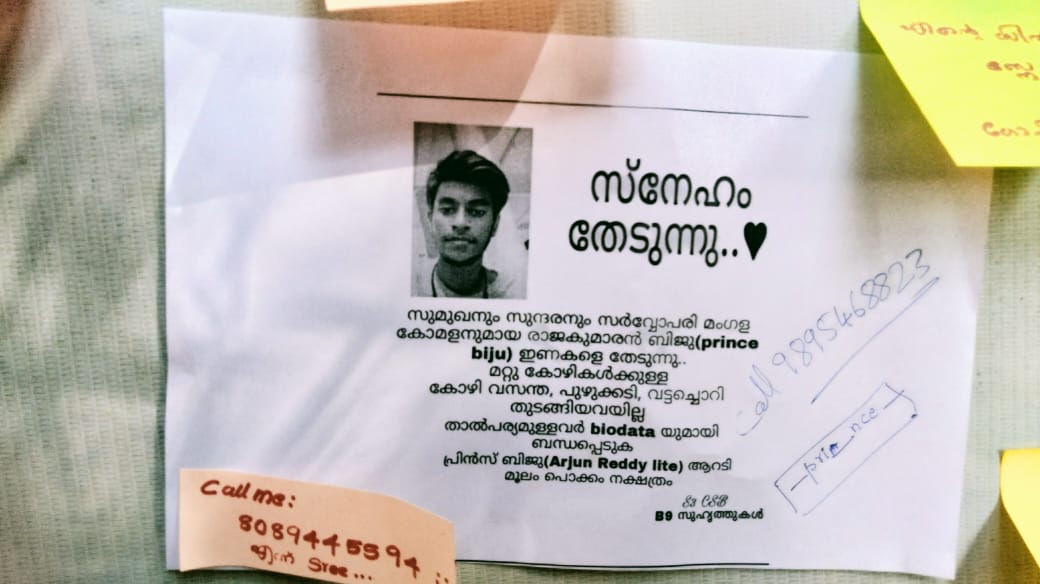 സ്നേഹം
തേടുന്നു..♥
സുമുഖനും സുന്ദരനും സർവ്വോപരി മംഗള
കോമളനുമായ രാജകുമാരൻ ബിജു(prince
biju) ഇണകളെ തേടുന്നു..
മറ്റു കോഴികൾക്കുള്ള
കോഴി വസന്ത, പുഴുക്കടി, വട്ടച്ചൊറി
തുടങ്ങിയവയില്ല
താൽപര്യമുള്ളവർ biodata യുമായി
ബന്ധപ്പെടുക
പ്രിൻസ് ബിജു(Arjun Reddy lite) ആറടി
മൂലം പൊക്കം നക്ഷത്രം
S3 CSB
B9 സുഹൃത്തുകൾ
call 9895468823
Call me:
8089445594
എന്ന് Sree...
എന്റെ